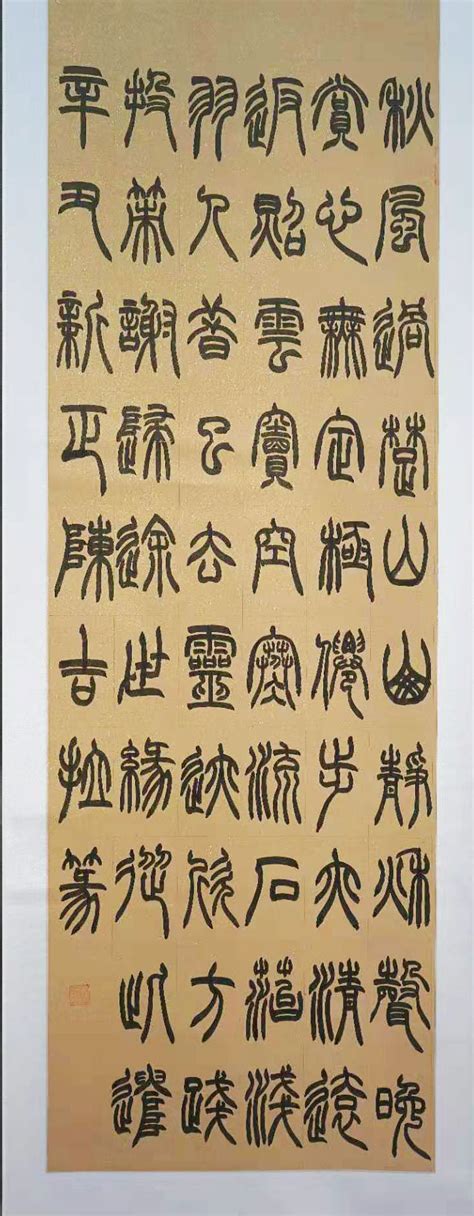 秋風過楚山山靜秋聲晚
賞心無定極僊步亦清遠
返照雲竇空寒流石苔淺
羽人昔已去靈迹欣方踐
投策謝歸途世緣從此遣
辛丑新正陳吉拉篆